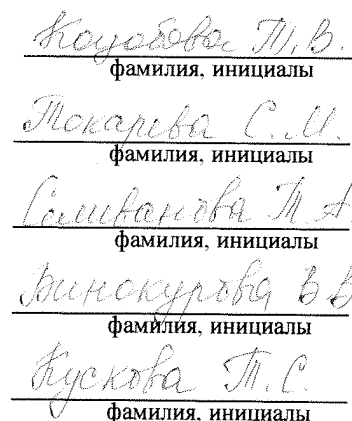 Коцобова Т.В.
фамилия, инициалы
Токарева С.М.
фамилия, инициалы
Селиванова Т А
фамилия, инициалы
Винокурова В В
фамилия, инициалы
Кускова Т.С.
фамилия, инициалы